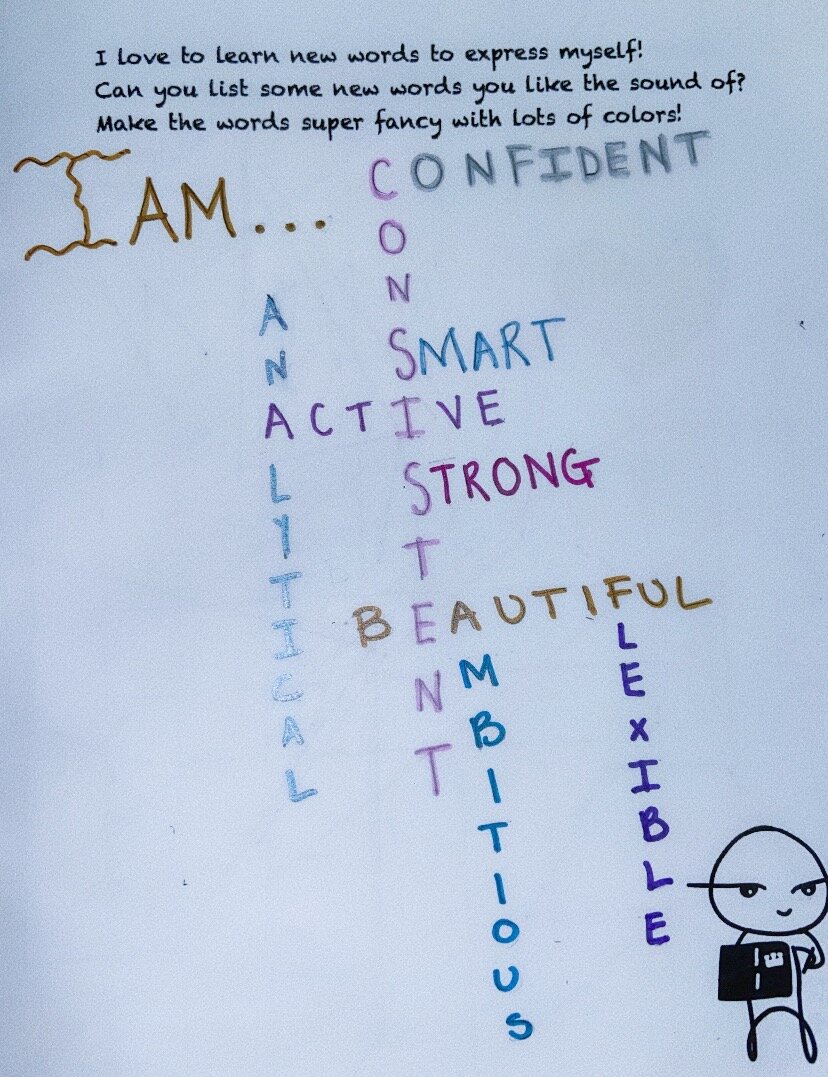 I love to learn new words to express myself!
Can you list some new words you like the sound of?
Make the words super fancy with lots of colors!
I AM...
CONFIDENT
CONSISTENT
ANALYTICAL
SMART
ACTIVE
STRONG
BEAUTIFUL
AMBITIOUS
FLEXIBLE